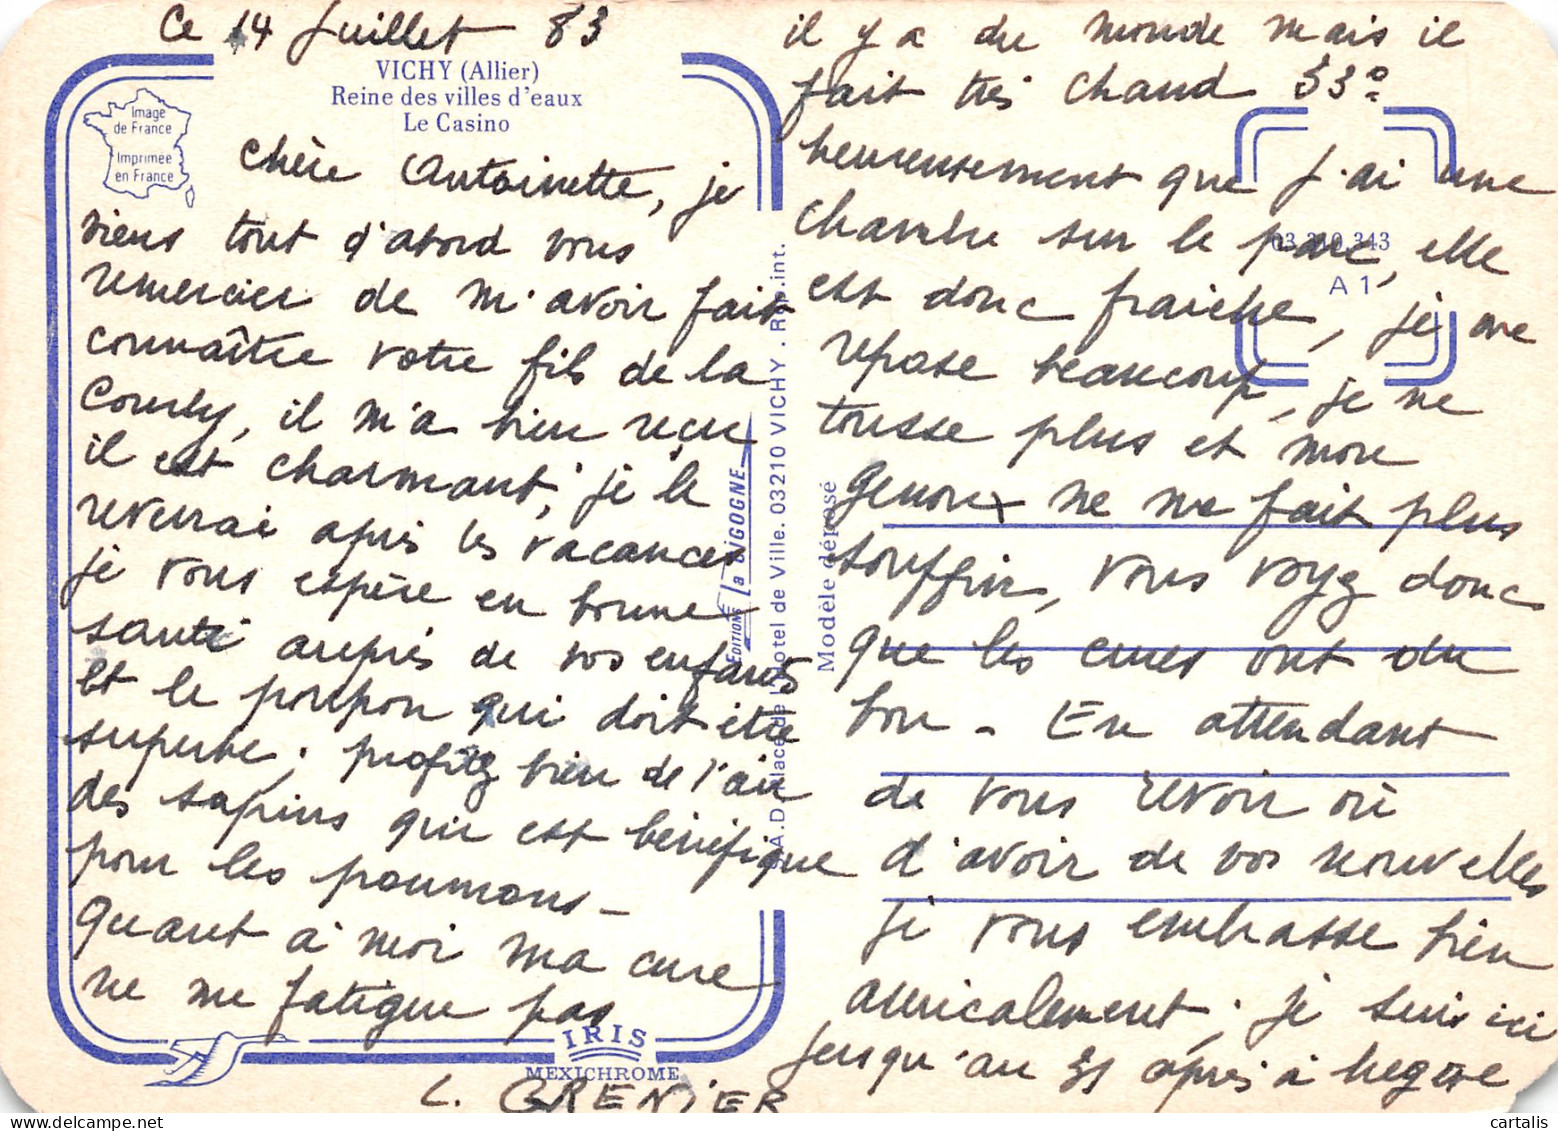 Ce 14 Juillet 83
VICHY (Allier)
Reine des villes d'eaux
Le Casino
Image
de France
Imprimée
en France
chère Antoinette, je
viens tout d'abord vous
remercier de m'avoir fait
connaître votre fils de la
Courly, il m'a bien reçue,
il est charmant, je le
reverrai après les vacances
je vous espère en bonne
santé auprès de vos enfants
et le poupon qui doit être
superbe; profitez bien de l'air
des sapins qui est bénéfique
pour les poumons -
Quant à moi ma cure
ne me fatigue pas
IRIS
MEXICHROME
L. GRENIER
EDITIONS La CIGOGNE
S.A.D. Place de l'Hotel de Ville. 03210 VICHY . Rep.int.
Modèle déposé
il y a du monde mais il
fait très chaud 33°
heureusement que j'ai une
chambre sur le parc, elle
03.310.343
A 1
est donc fraiche, je me
repose beaucoup, je ne
tousse plus et mon
genoux ne me fait plus
souffrir, vous voyez donc
que les cures ont du
bon - En attendant
de vous revoir où
d'avoir de vos nouvelles
je vous embrasse bien
amicalement; je suis ici
jusqu'au 31 après à
cartalis